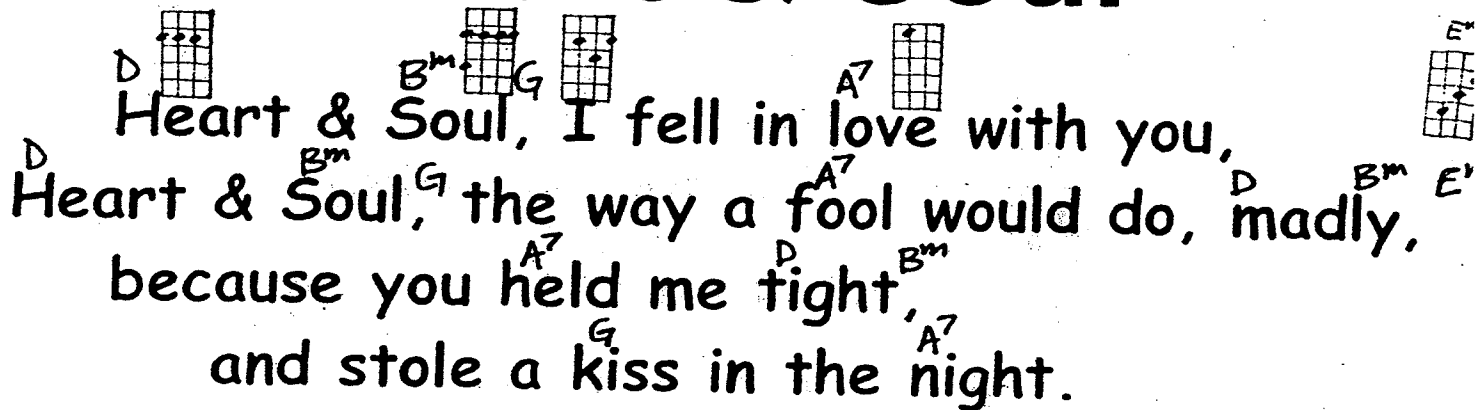 D Bm G A7
Heart & Soul, I fell in love with you,
D Bm G A7 D Bm
Heart & Soul, the way a fool would do, madly,
A7 D Bm
because you held me tight,
G A7
and stole a kiss in the night.